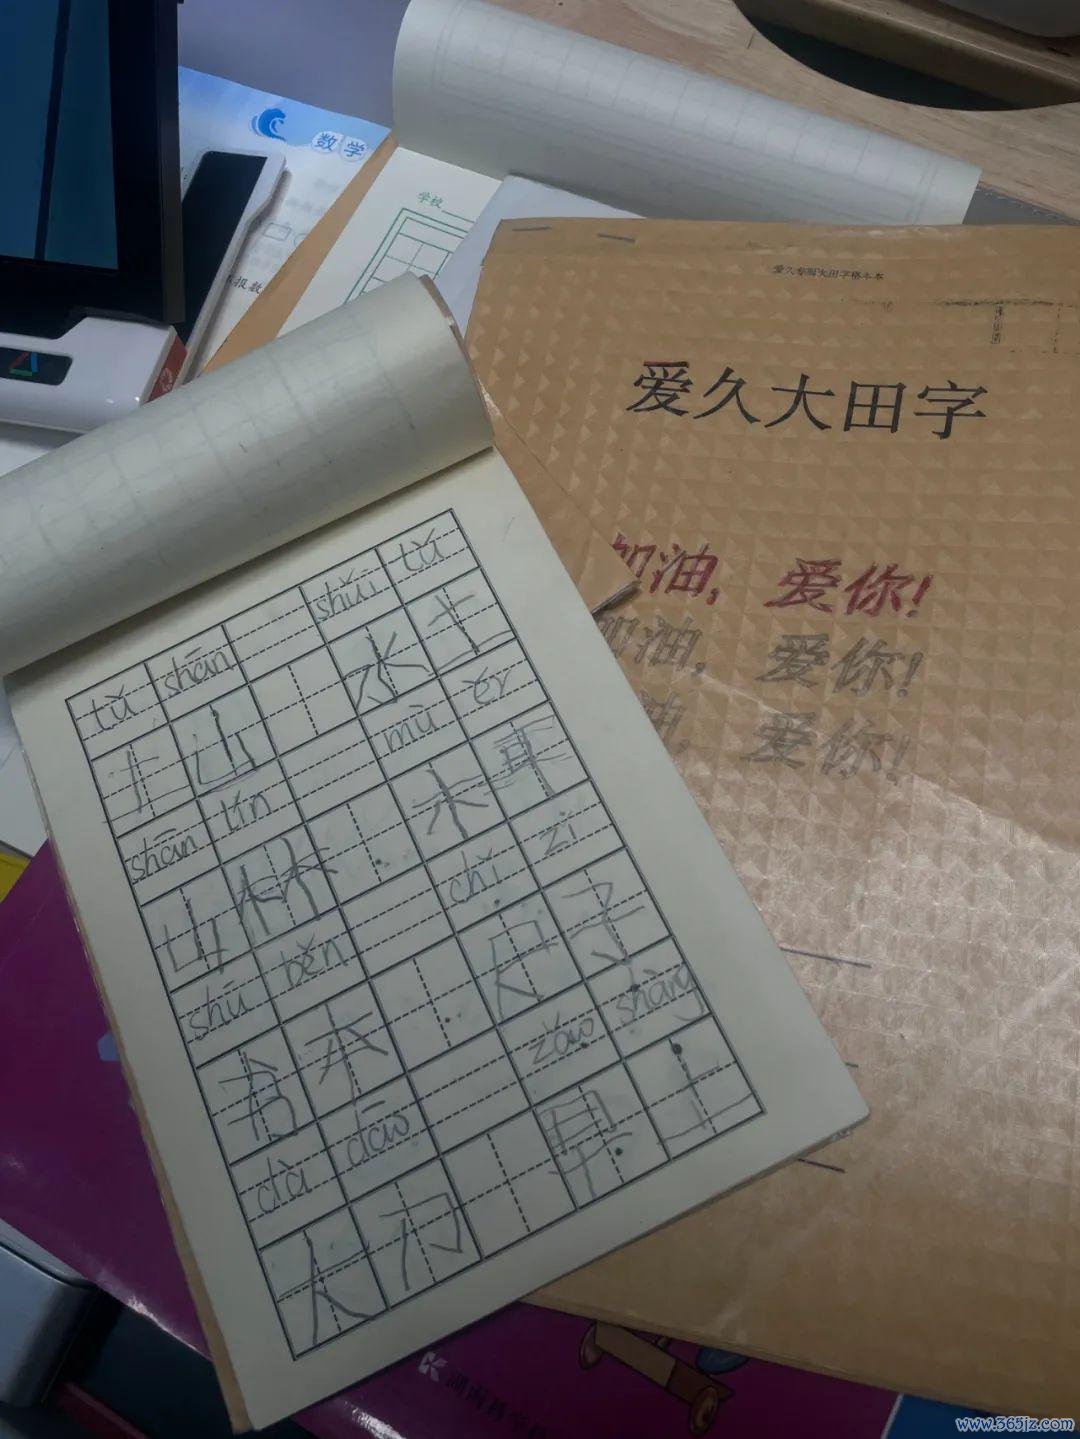 数学
学校
爱久专属大田字格本本
爱久大田字
加油，爱你！
加油，爱你！
油，爱你！
tǔ shān shuǐ tǔ
土 山 水 土
shān lín mù ěr
山 林 木 耳
shū běn chǐ zi
本 尺 子
dà dāo zǎo shàng
大 刀 早 上
湖南科学
www.365jz.com